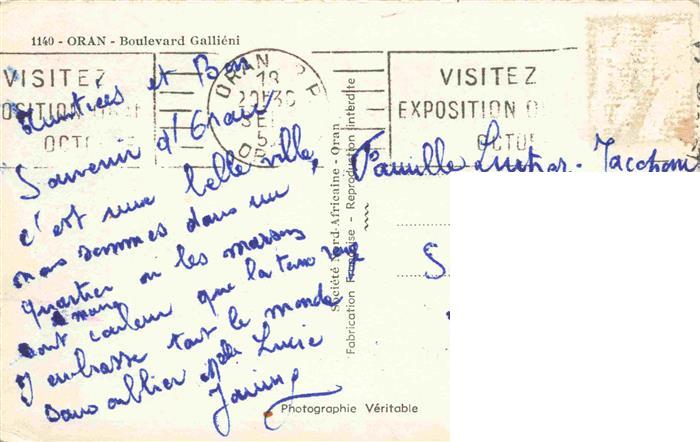 1140 - ORAN - Boulevard Galliéni
VISITEZ
POSITION
OCTO
ORAN R.P
18
20H30
SE
5
ORAN
VISITEZ
EXPOSITION
OCTOB
Amitiés et Bon
Souvenir d'Oran
c'est une belle ville,
nous sommes dans un
quartier où les maisons
sont couleur que la terre
J'embrasse tout le monde
sans oublier Lucie
Janine
Famille
S.
Société Nord-Africaine - Oran
Fabrication Française - Reproduction interdite
Photographie Véritable